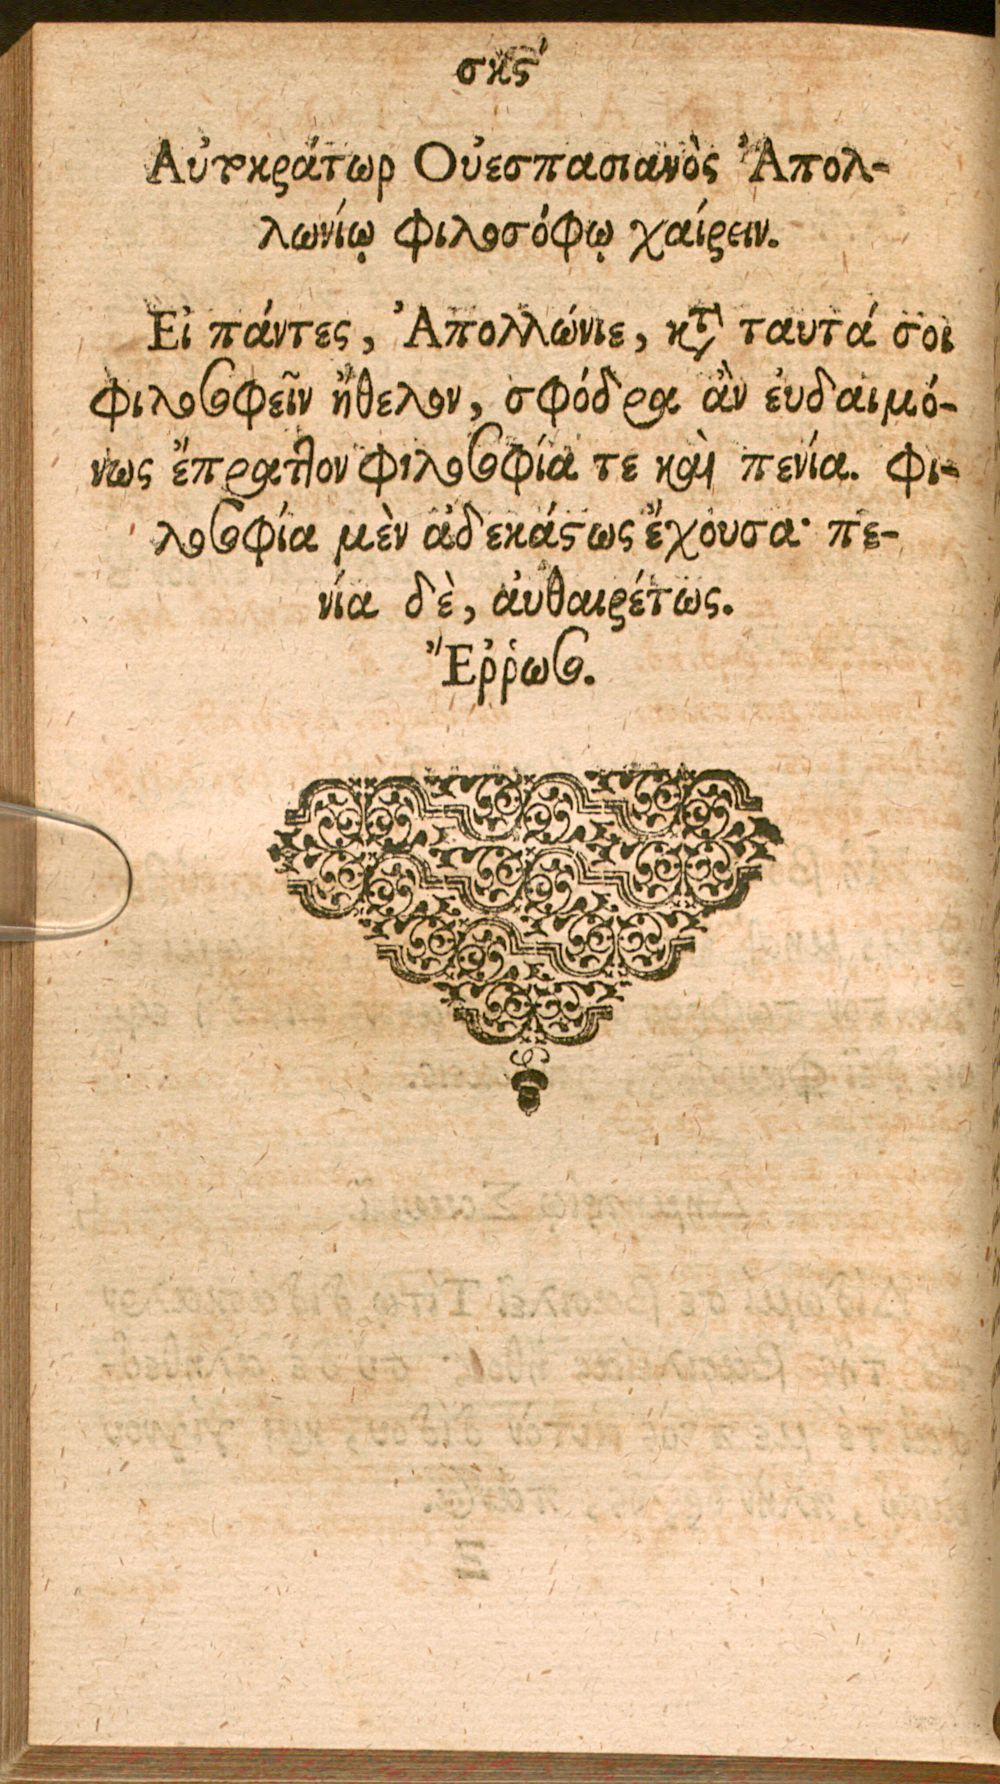 σκϛʹ
Αὐτοκράτωρ Οὐεσπασιανὸς Ἀπολ-
λωνίῳ φιλοσόφῳ χαίρειν.
Εἰ πάντες, Ἀπολλώνιε, κτ ταυτά σοι
φιλοσοφεῖν ἤθελον, σφόδρα ἂν ἐυδαιμό-
νως ἔπραττον φιλοσοφία τε καὶ πενία. Φι-
λοσοφία μὲν ἀδεκάστως ἔχουσα· πε-
νία δὲ, ἀυθαιρέτως.
Ἔῤῥωσο.